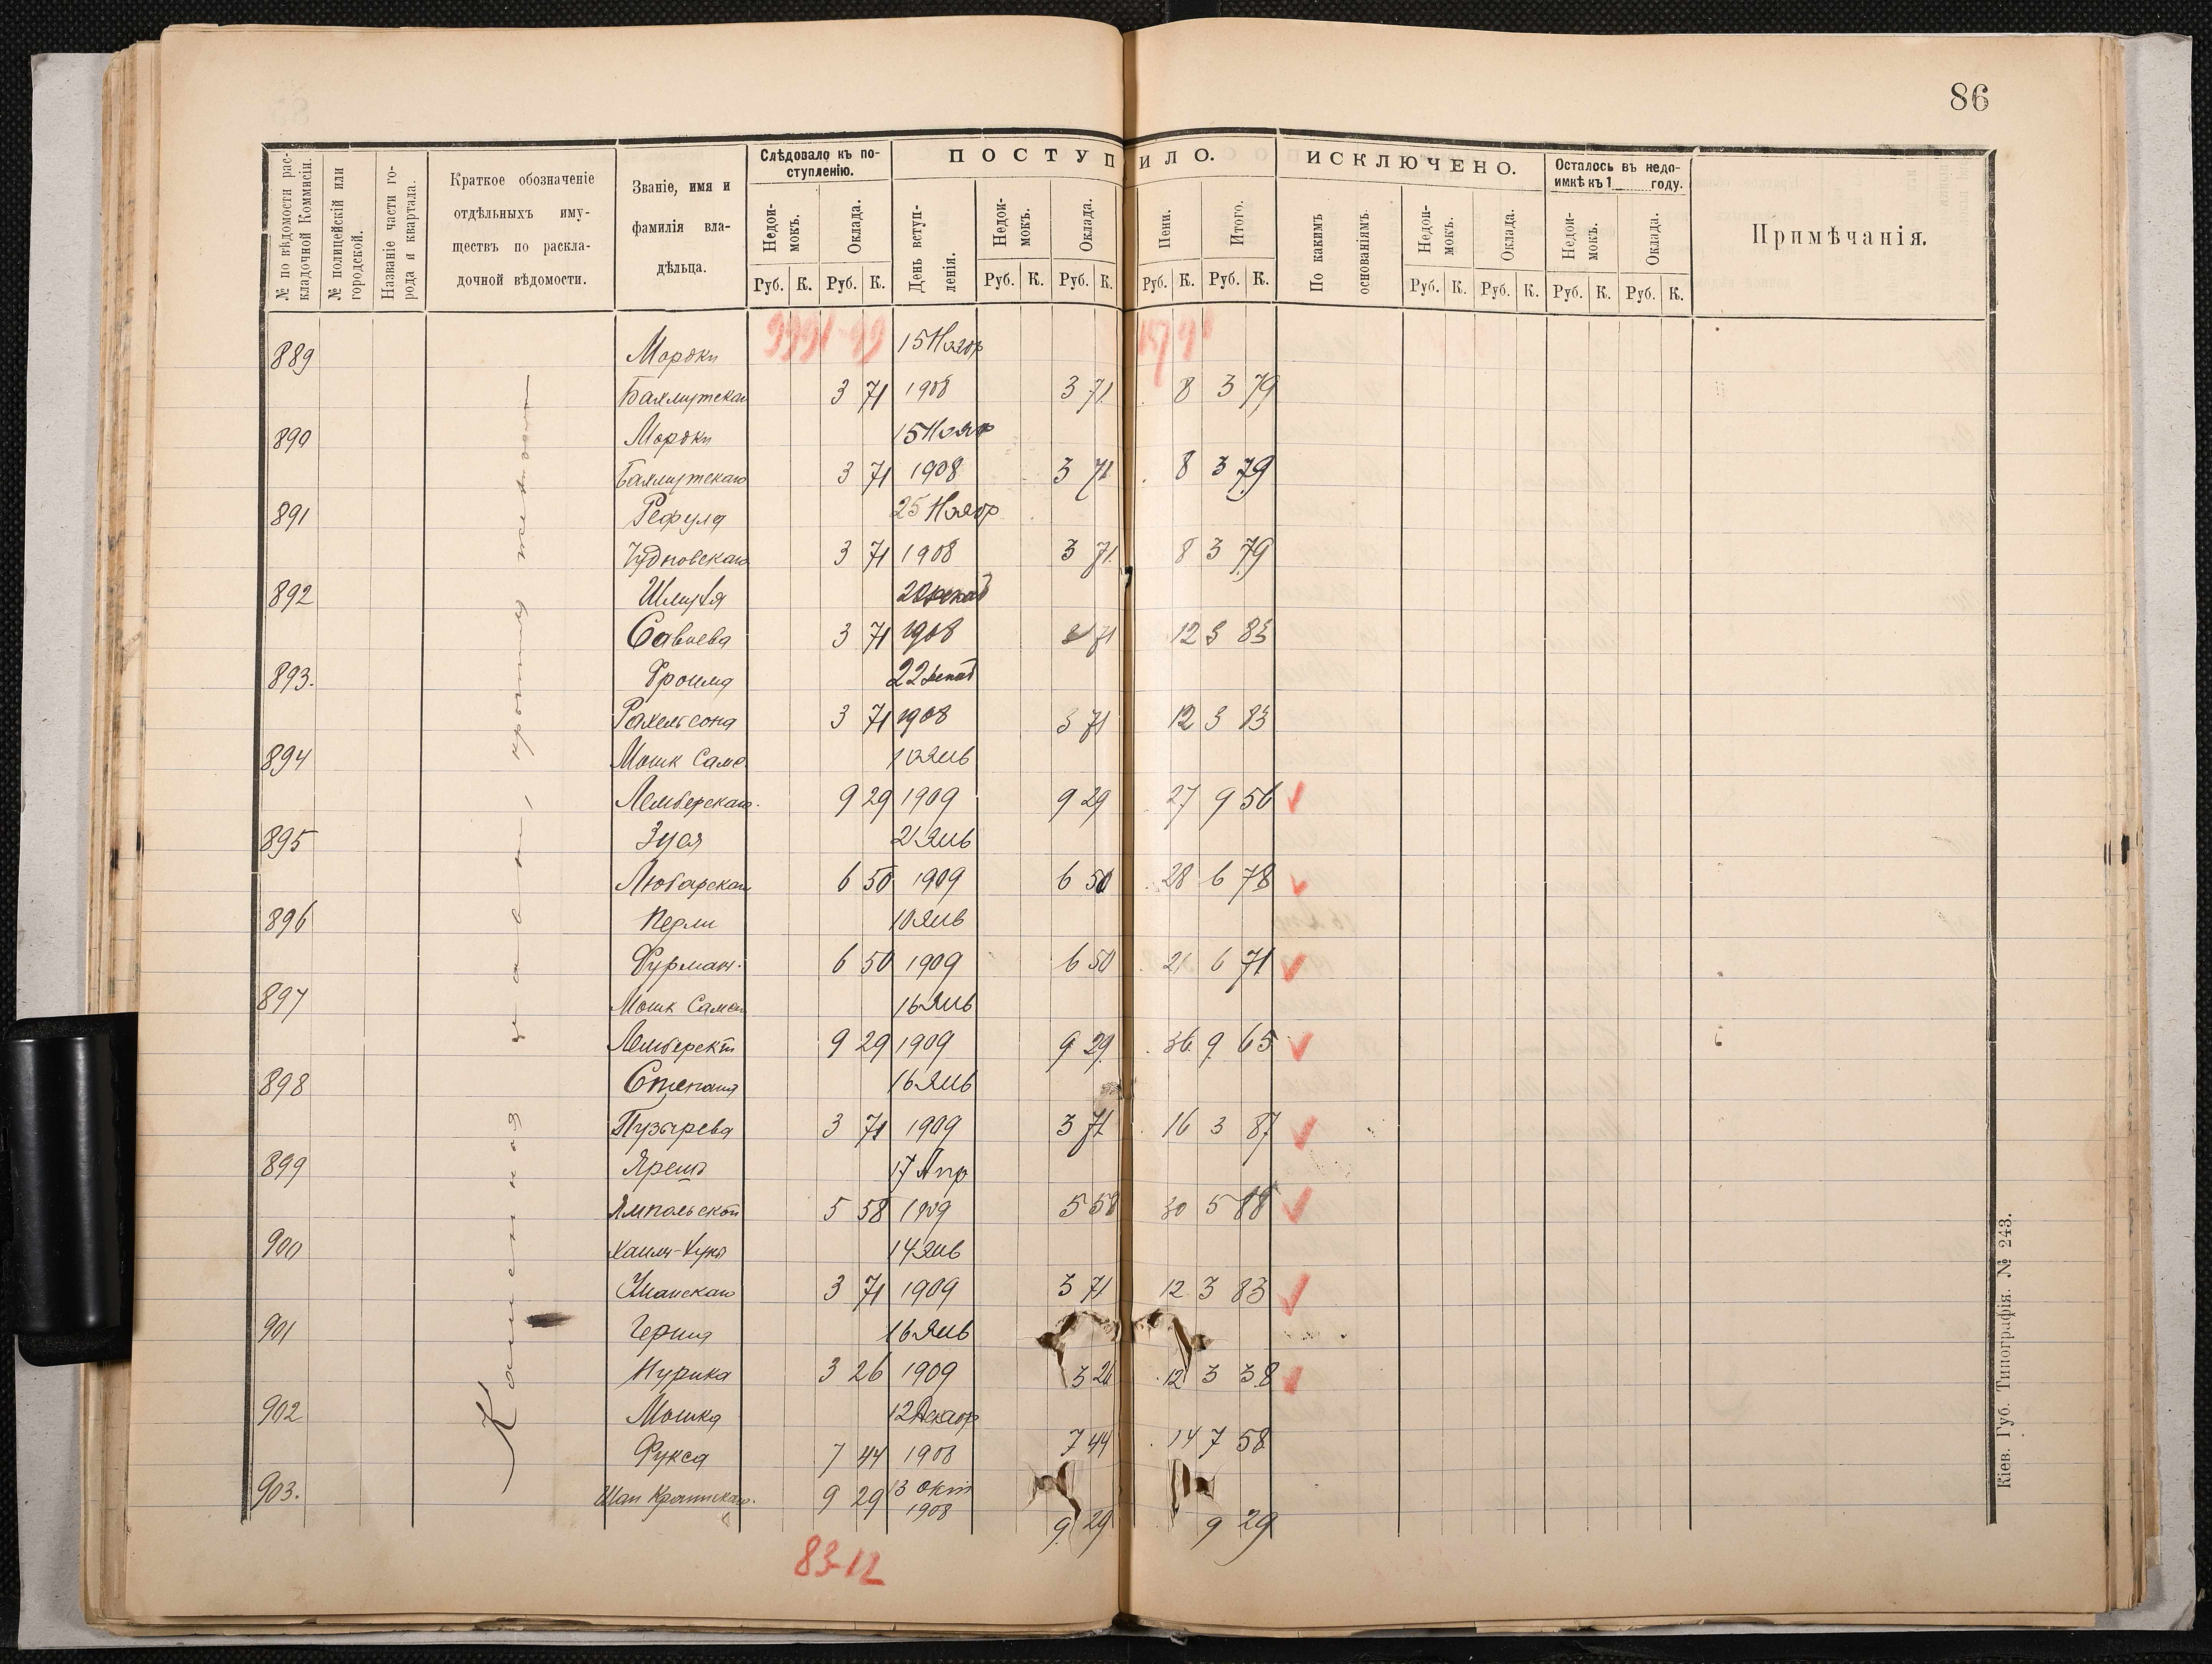 86
№ по вѣдомости рас-
кладочной Коммисіи.
№ полицейскій или
городской.
Названіе части го-
рода и квартала.
Краткое обозначеніе
отдѣльныхъ иму-
ществъ по раскла-
дочной вѣдомости.
Званіе, имя и
фамилія вла-
дѣльца.
Слѣдовало къ по-
ступленію.
Недои-
мокъ.
Оклада.
Руб. К. Руб. К.
ПОСТУПИЛО.
День вступ-
ленія.
Недои-
мокъ.
Оклада.
Пени.
Итого.
Руб. К. Руб. К. Руб. К. Руб. К.
ИСКЛЮЧЕНО.
По какимъ
основаніямъ.
Недои-
мокъ.
Оклада.
Руб. К. Руб. К.
Осталось въ недо-
имкѣ къ 1 году.
Недои-
мокъ.
Оклада.
Руб. К. Руб. К.
Примѣчанія.
889 Мордки 15 Ноябр
3 71 1908 3 71 8 3 79
890 Мордки 15 Нояб
3 71 1908 3 71 8 3 79
891 25 Ноябр
Чудновскаго 3 71 1908 3 71 8 3 79
892 Шмуля
3 71 1908 3 71 12 3 83
893. Фроима 22 Декаб
Рахельсона 3 71 1908 3 71 12 3 83
894 Мошк 10 Янв
Лемберскаго. 9 29 1909 9 29 27 9 56
895 Зуся 21 Янв
Любарскаго 6 50 1909 6 50 28 6 78
896 Перли 10 Янв
Фурман. 6 50 1909 6 50 21 6 71
897 Мошк 16 Янв
9 29 1909 9 29 36 9 65
898 Степана 16 Янв
Пузырева 3 71 1909 3 71 16 3 87
899 17 Апр
Ямпольской 5 58 1909 5 58 30 5 88
900 14 Янв
Уманскаго 3 71 1909 3 71 12 3 83
901 Герша 16 Янв
3 26 1909 3 26 12 3 38
902 Мошка 12 Декабр
Фукса 7 44 1908 7 44 14 7 58
903. 9 29 13 окт
1908 9 29 9 29
83-12
Каменная
крытая жестью
Кіев. Губ. Типографія. № 243.